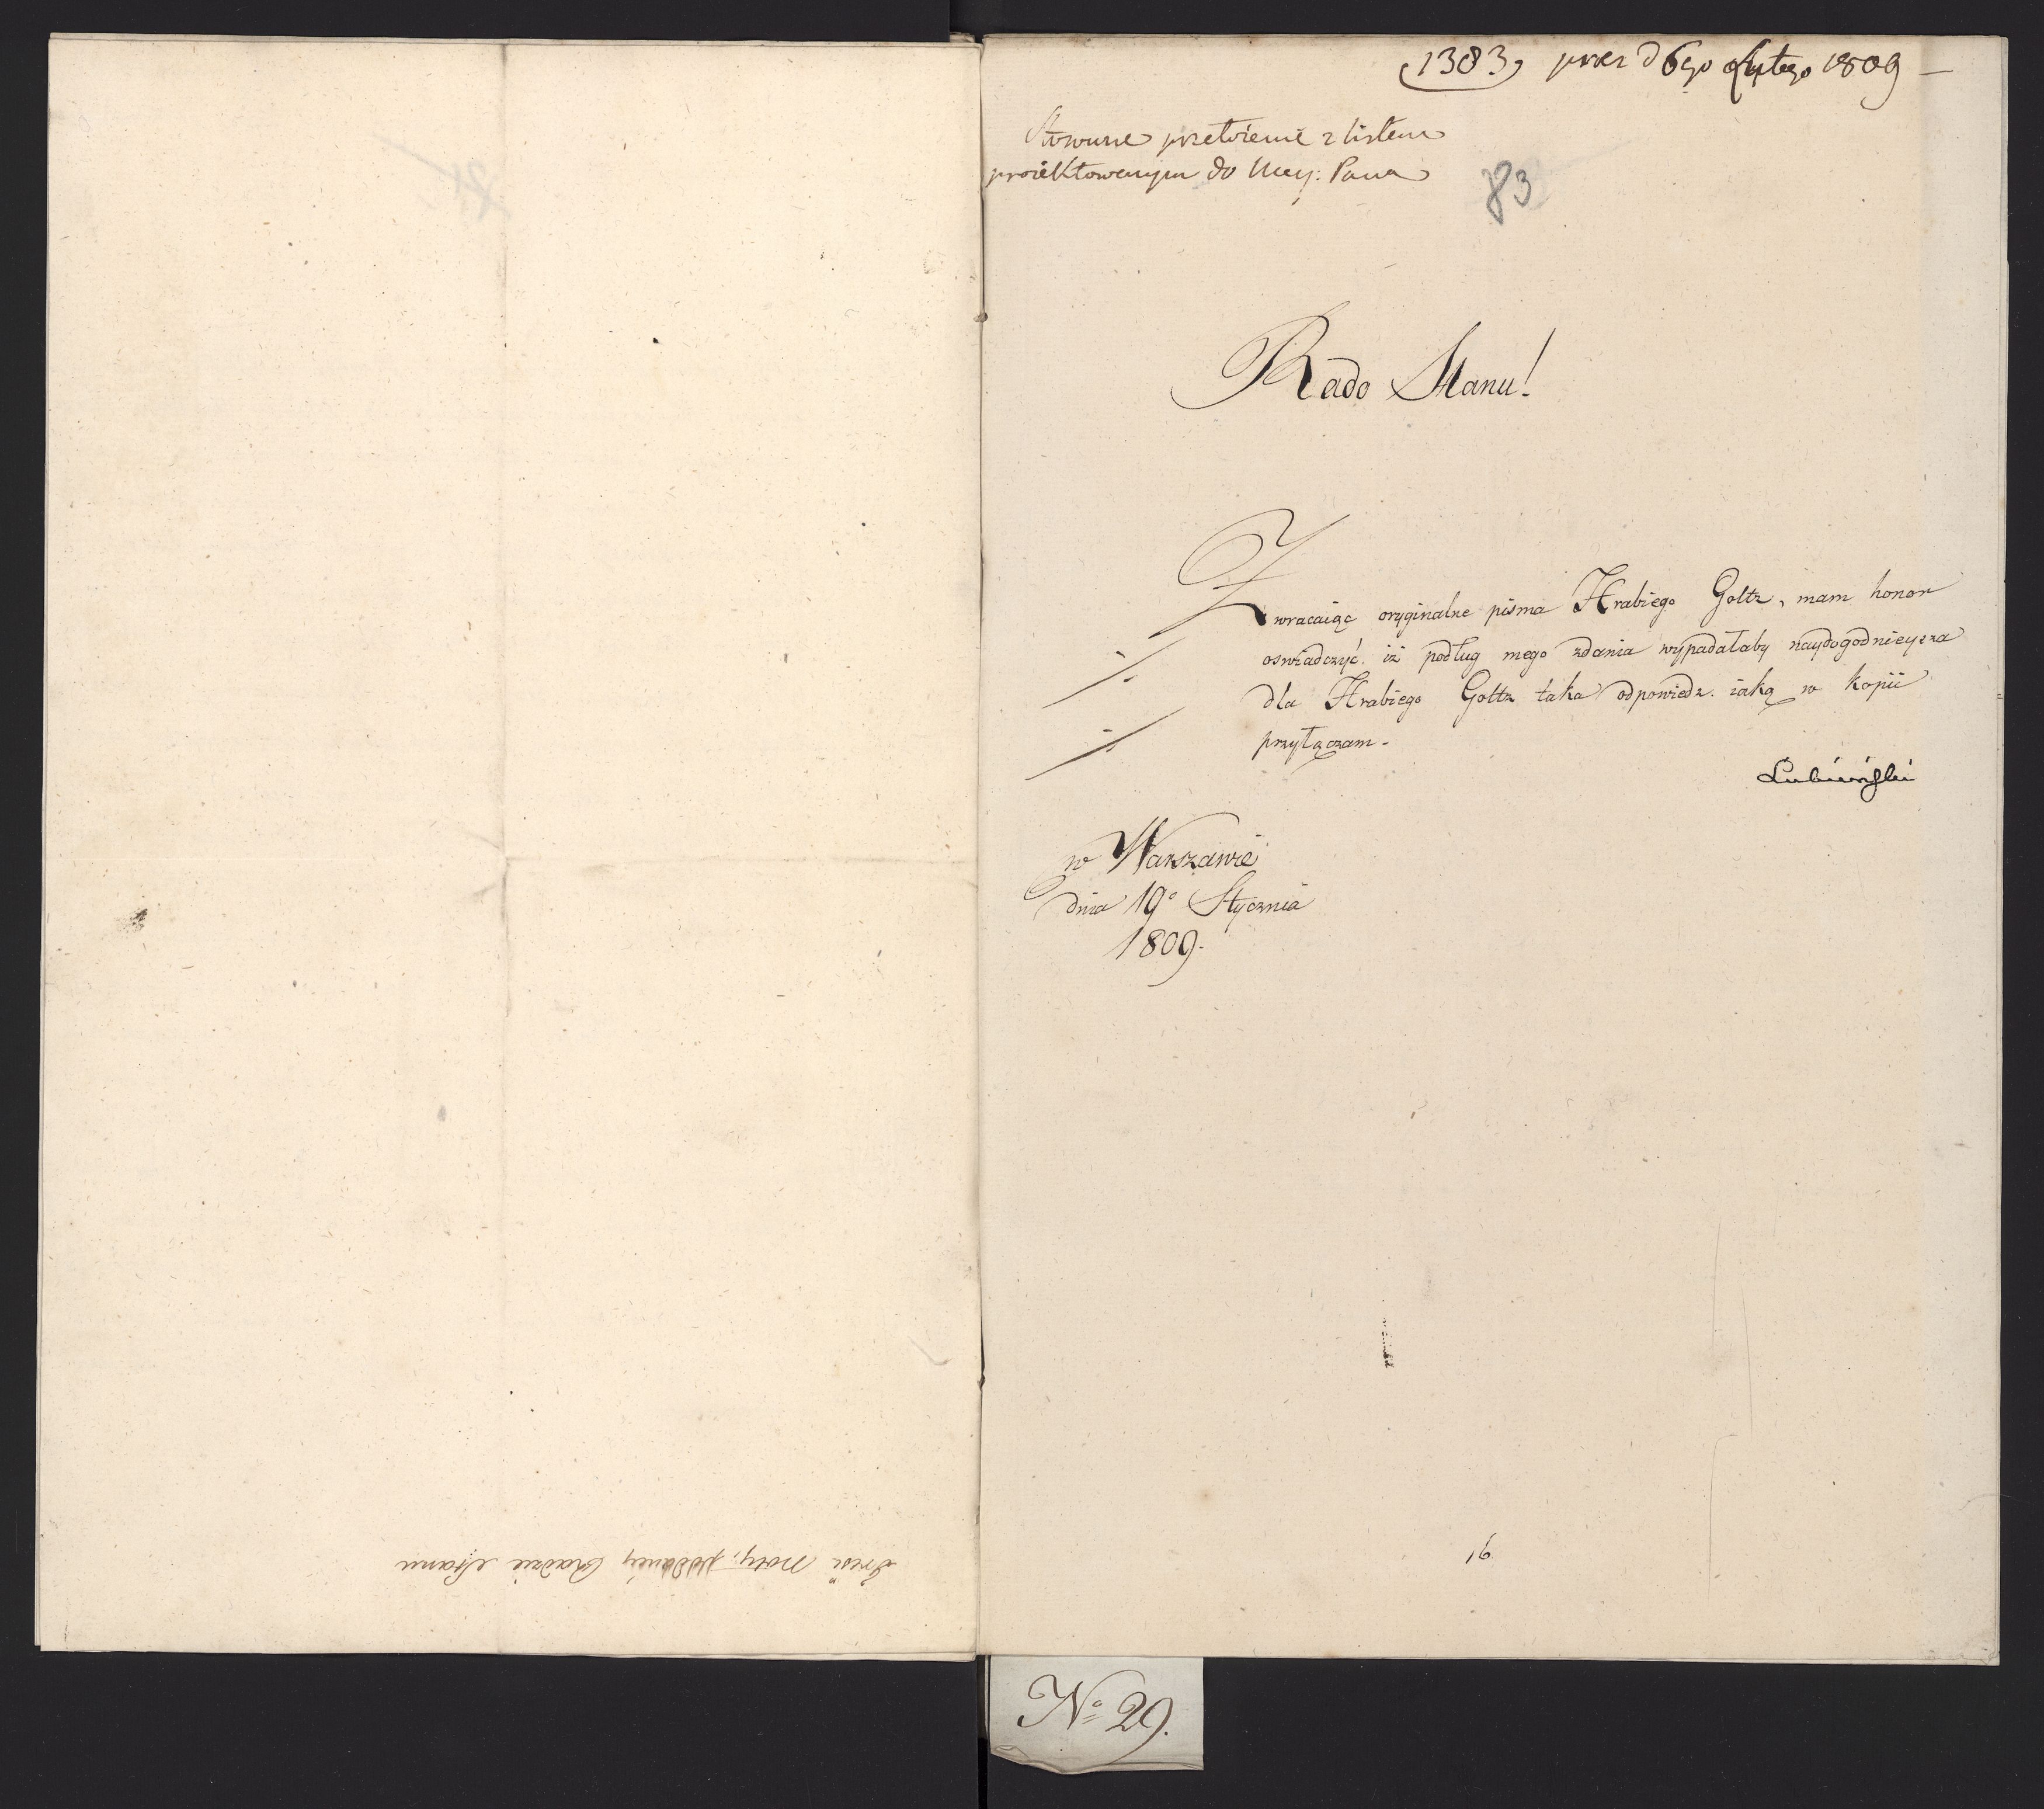 Treść Noty, podaney Radzie Stanu
1383, prez d 6go Lutego 1809 —
Stosowne przełożenie z listem
proiektowanym do Nay: Pana
83
Rado Stanu!
Zwracaiąc oryginalne pisma Hrabiego Goltz, mam honor
oswiadczyć. iż podług mego zdania wypadałaby naydogodnieysza
dla Hrabiego Goltz taka odpowiedz. iaką w kopii
przyłączam.
Lubieński
w Warszawie
dnia 19o Stycznia
1809.
16
No 29.